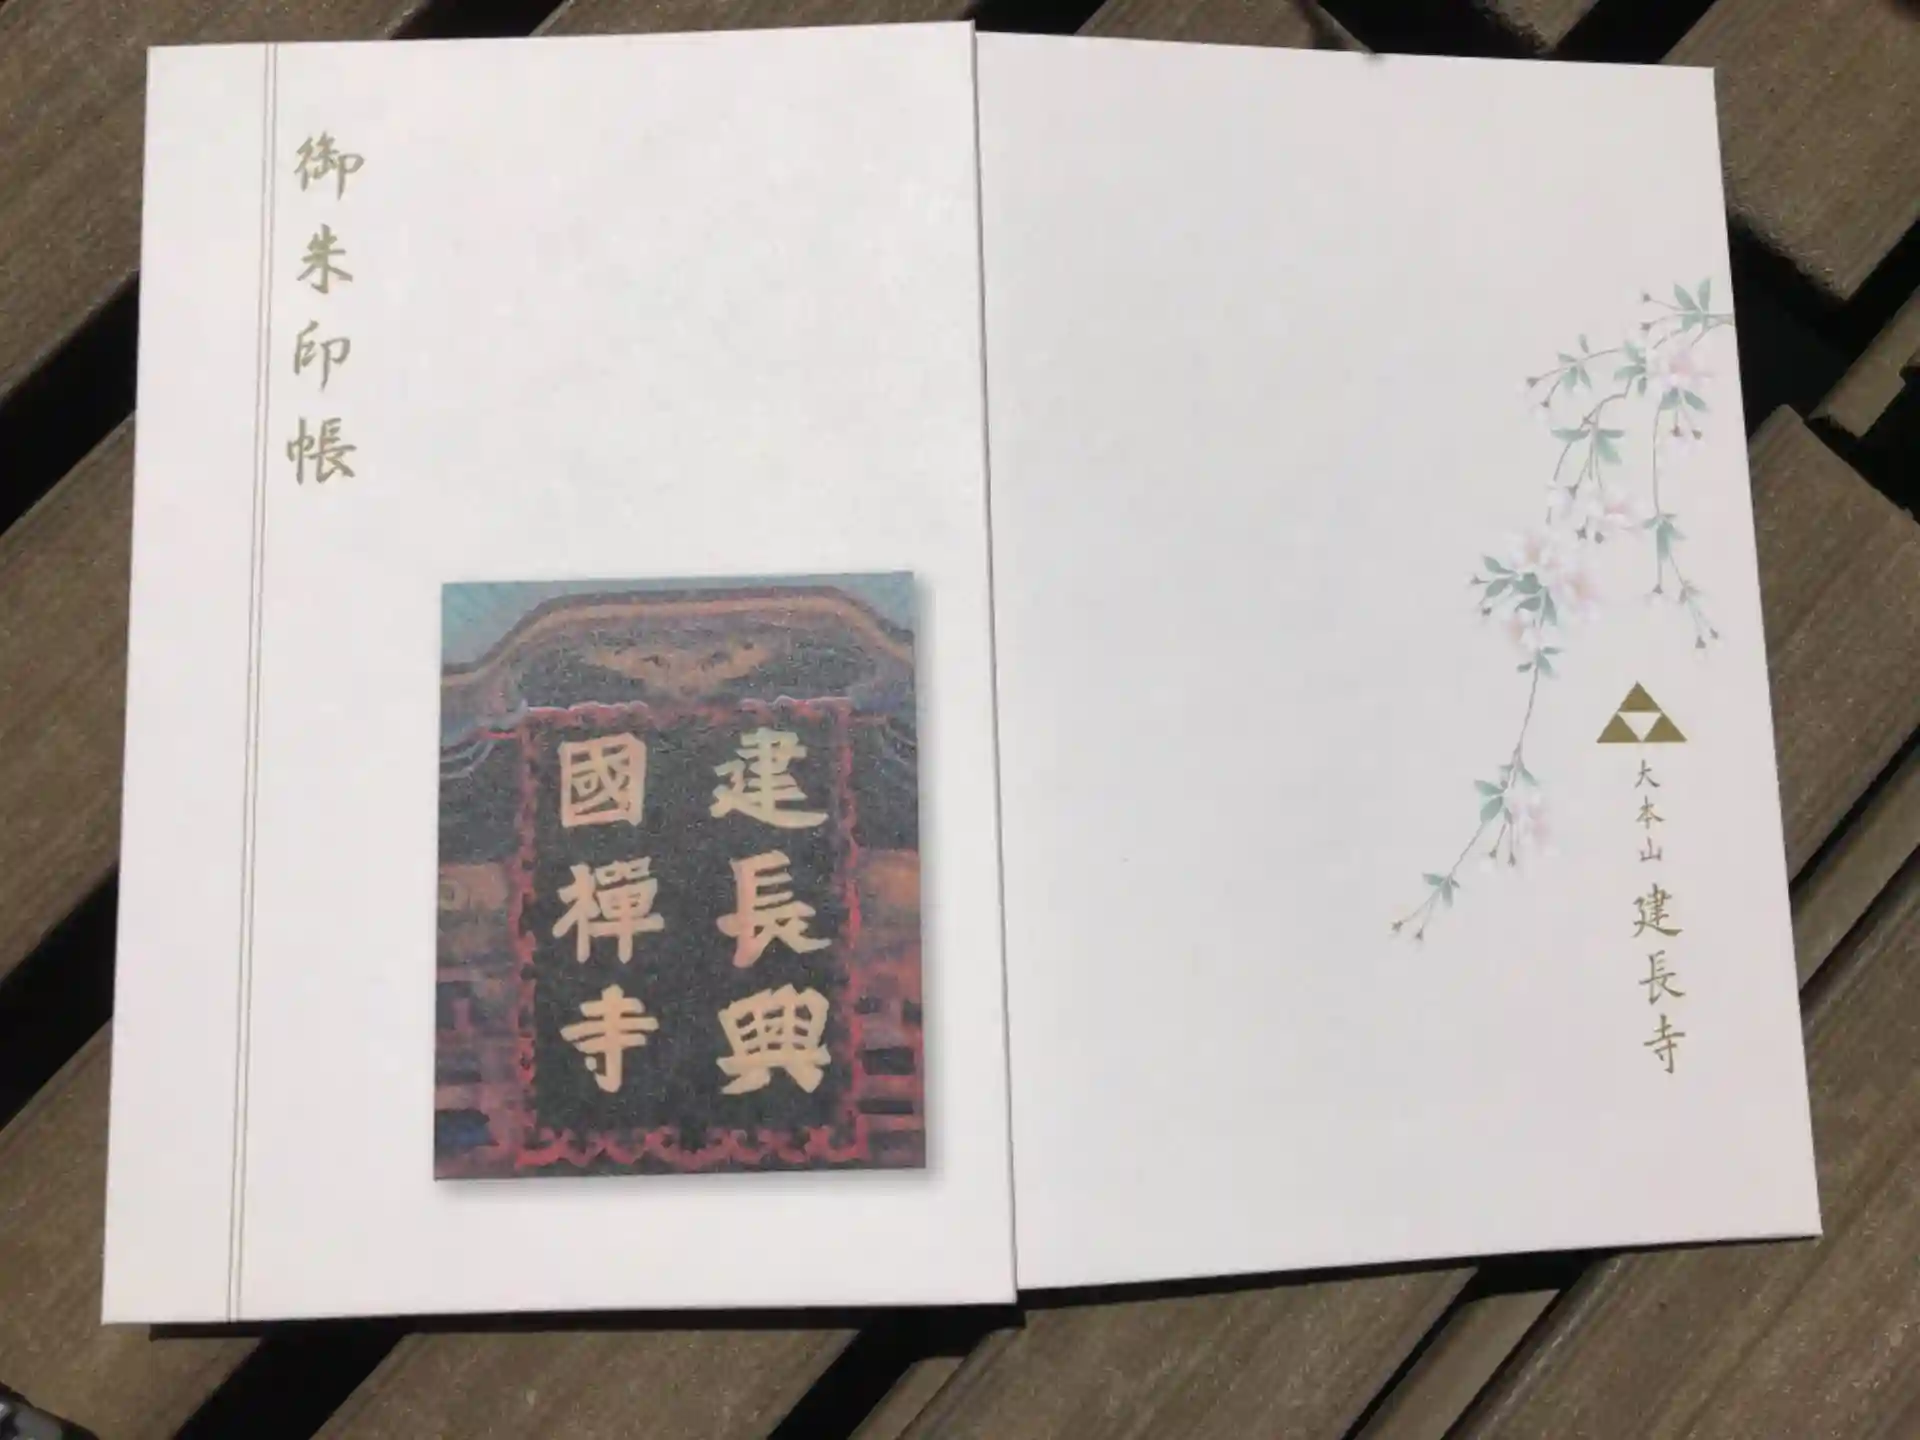 御朱印帳
建長興
國禪寺
大本山 建長寺